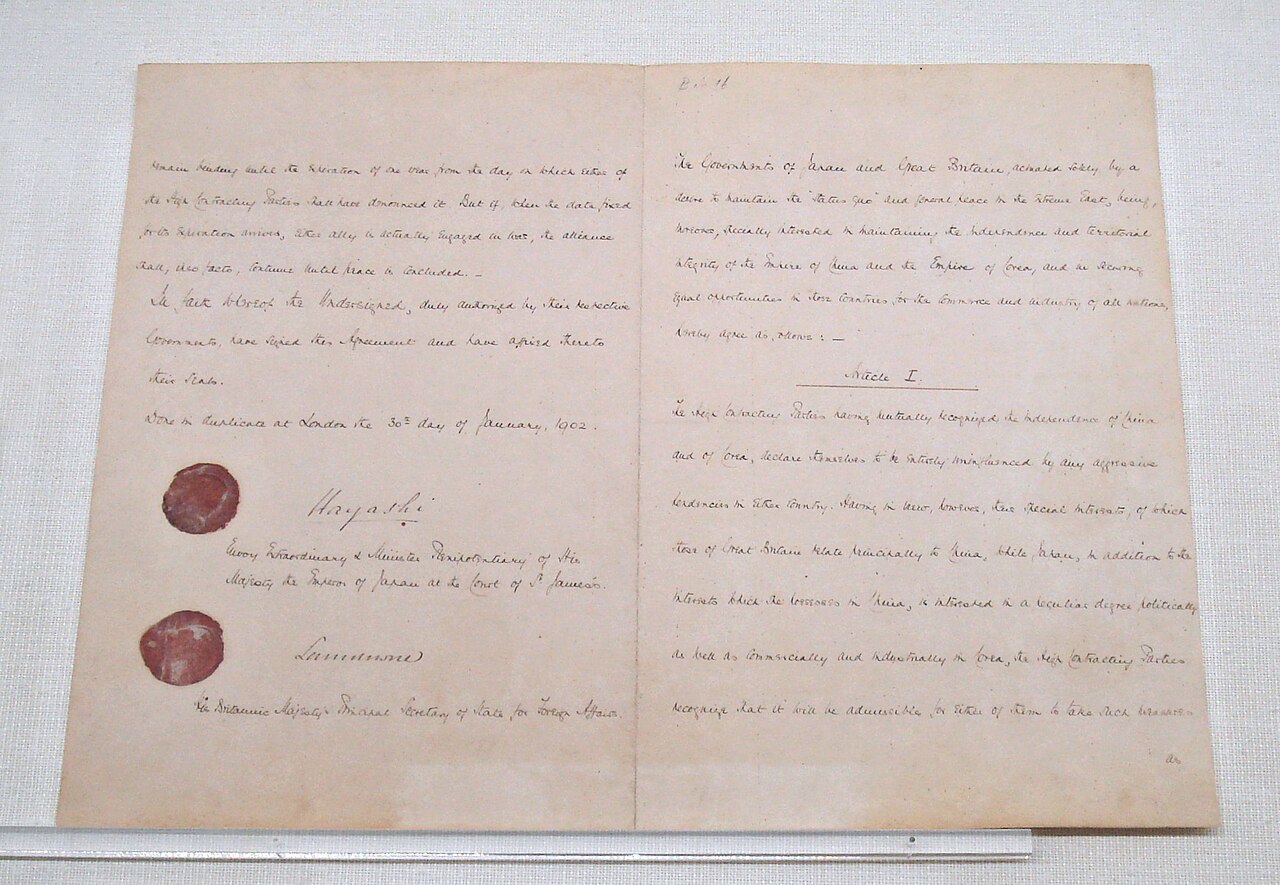 remain binding until the expiration of one year from the day on which either of
the High Contracting Parties shall have denounced it. But if, when the date fixed
for its expiration arrives, either ally is actually engaged in war, the alliance
shall, ipso facto, continue until peace is concluded. —
In faith whereof the Undersigned, duly authorized by their respective
Governments, have signed this Agreement and have affixed thereto
their Seals.
Done in duplicate at London the 30th day of January, 1902.
Hayashi
Envoy Extraordinary & Minister Plenipotentiary of His
Majesty the Emperor of Japan at the Court of St James's.
Lansdowne
His Britannic Majesty's Principal Secretary of State for Foreign Affairs.
The Governments of Japan and Great Britain, actuated solely by a
desire to maintain the "status quo" and general peace in the Extreme East, being,
moreover, specially interested in maintaining the independence and territorial
integrity of the Empire of China and the Empire of Corea, and in securing
equal opportunities in those countries for the commerce and industry of all nations,
hereby agree as follows : —
Article I.
The High Contracting Parties having mutually recognized the independence of China
and of Corea, declare themselves to be entirely uninfluenced by any aggressive
tendencies in either country. Having in view, however, their special interests, of which
those of Great Britain relate principally to China, while Japan, in addition to the
interests which she possesses in China, is interested in a peculiar degree politically
as well as commercially and industrially in Corea, the High Contracting Parties
recognize that it will be admissible for either of them to take such measures
as